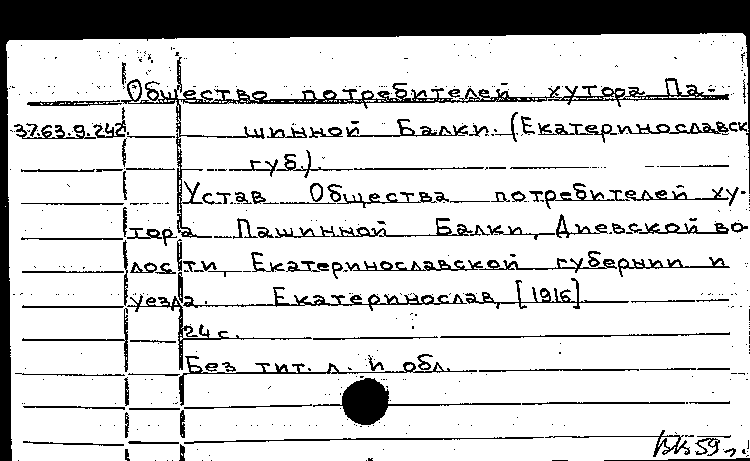 Общество потребителей хутора Па-
37.63.9.242. шинной Балки. (Екатеринославск
губ.).
Устав Общества потребителей ху-
тора Пашинной Балки, Диевской во-
лости, Екатеринославской губернии и
уезда. Екатеринослав, [1916].
24 с.
Без тит. л. и обл.